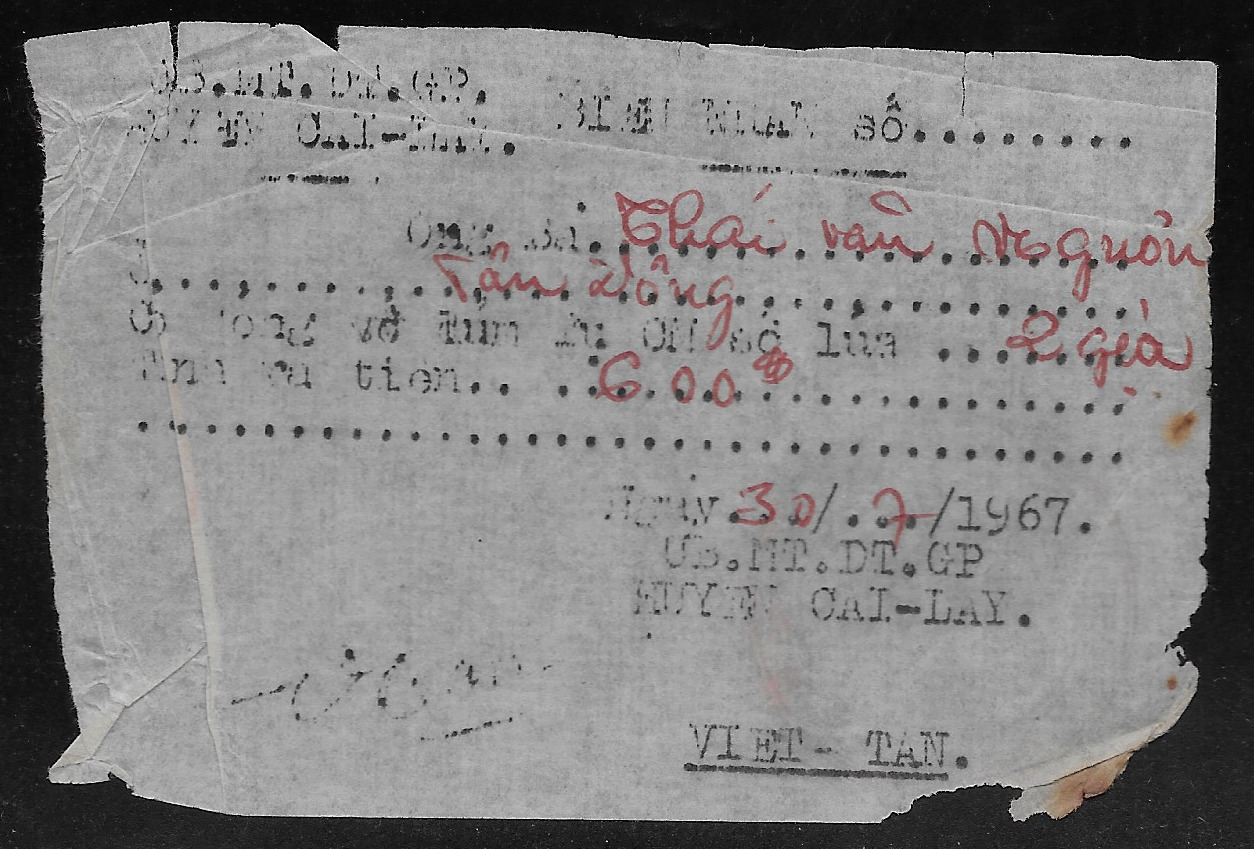 UB.MT.DT.GP.
HUYEN CAI-LAY.
BIEN NHAN số........
Ông Bà. Thái văn Nguôn
Tân Đông
số lúa ... 2 giạ
tiền.. 600$
Ngày 30/.7./1967.
UB.MT.DT.GP
HUYEN CAI-LAY.
VIET- TAN.